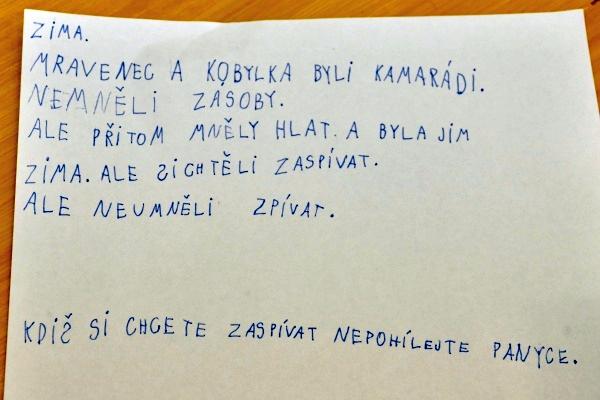 ZIMA.
MRAVENEC A KOBYLKA BYLI KAMARÁDI.
NEMNĚLI ZÁSOBY.
ALE PŘITOM MNĚLY HLAT. A BYLA JIM
ZIMA. ALE SI CHTĚLI ZASPÍVAT.
ALE NEUMNĚLI ZPÍVAT.
KDIŠ SI CHCETE ZASPÍVAT NEPOHÍLEJTE PANYCE.